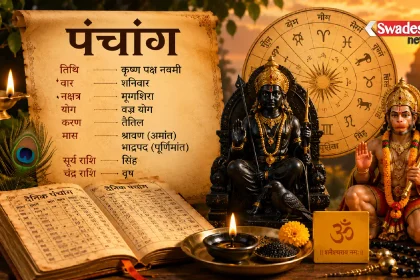 पंचांग
Swades
net
तिथि कृष्ण पक्ष नवमी
वार शनिवार
नक्षत्र मृगशिरा
योग वज्र योग
करण तैतिल
मास श्रावण (अमांत)
भाद्रपद (पूर्णिमांत)
सूर्य राशि सिंह
चंद्र राशि वृष
दैनिक पंचांग
दैनिक पंचांग
ॐ